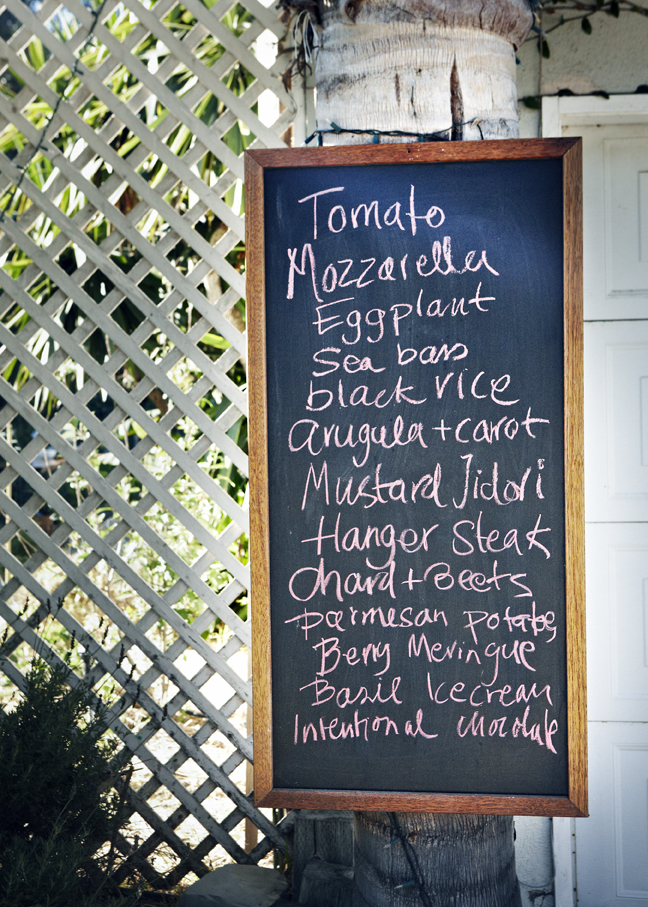 Tomato
Mozzarella
Eggplant
Sea bass
black rice
arugula + carot
Mustard Jidori
Hanger Steak
Chard + Beets
parmesan potatoe,
Berry Meringue
Basil Icecream
Intentional chocolate